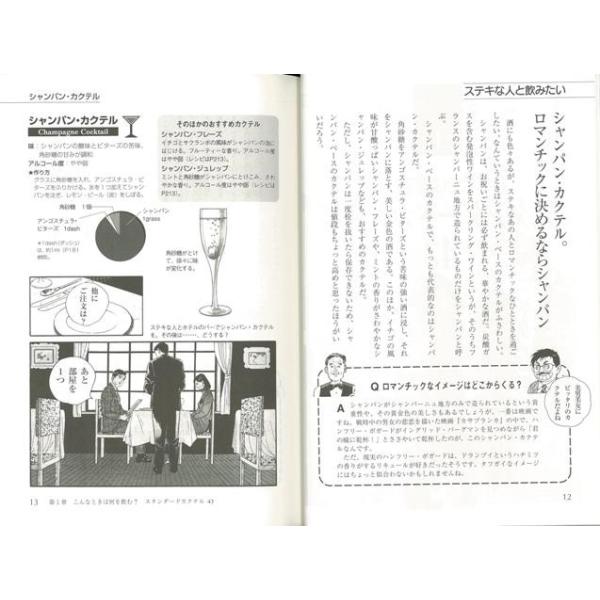 ステキな人と飲みたい
シャンパン・カクテル。
ロマンチックに決めるならシャンパン
酒にも色々あるが、ステキなあの人とロマンチックなひとときを過ご
したい、なんていうときはシャンパン・ベースのカクテルがふさわしい。
シャンパンは、お祝いごとには必ず飲まれる、華やかな酒だ。炭酸ガ
スを含む発泡性ワインをスパークリング・ワインというが、そのうちフ
ランスのシャンパーニュ地方で造られているものだけをシャンパンと呼
ぶ。
シャンパン・ベースのカクテルで、もっとも代表的なのはシャンパ
ン・カクテル。
角砂糖をアンゴスチュラ・ビターズという苦味の強い酒に浸し、それ
をシャンパンに落とす、美しい金色の酒である。このほか、イチゴの風
味が甘酸っぱいシャンパン・フレーズや、ミントの香りがさわやかなシ
ャンパン・ジュレップなども、おすすめのカクテルだ。
ただし、シャンパンは一度栓を抜いたら保存できないため、シャ
ンパン・ベースのカクテルは値段もちょっと高めと思ったほうがい
いだろう。
Q ロマンチックなイメージはどこからくる?
A シャンパンがシャンパーニュ地方のみで造られているという貴
重性や、その黄金色の美しさもあるでしょうが、一番は映画で
すね。戦時中の男女の悲恋を描いた映画『カサブランカ』の中で、ハ
ンフリー・ボガードがイングリッド・バーグマンを見つめながら「君
の瞳に乾杯!」とささやいて乾杯したのが、このシャンパン・カクテ
ルなんです。
ただ、現実のハンフリー・ボガードは、ドランブイというハチミツ
の香りがするリキュールが好きだったそうです。タフガイなイメージ
にはちょっと似合わないかもしれませんね。
美男美女に
ピッタリのカ
クテルだよね
12
シャンパン・カクテル
シャンパン・カクテル
Champagne Cocktail
味:シャンパンの酸味とビターズの苦味、
角砂糖の甘みが調和
アルコール度:やや弱
●作り方
グラスに角砂糖を入れ、アンゴスチュラ・ビ
ターズをふりかける。氷を1つ加えてシャン
パンを注ぎ、レモン・ピール(適量)をする。
角砂糖 1個
アンゴスチュラ・
ビターズ 1dash
シャンパン
1grass
*1dash(ダッシュ)
は、約1ml(P181
参照)。
そのほかのおすすめカクテル
シャンパン・フレーズ
イチゴとサクランボの風味がシャンパンの泡に
はじける。フルーティーな香り。アルコール度
はやや弱(レシピはP213)。
シャンパン・ジュレップ
ミントと角砂糖がシャンパンにとけこみ、さわ
やかな香り。アルコール度はやや弱(レシピは
P213)。
角砂糖がとけ
て、徐々に味
が変化する。
ステキな人とホテルのバーでシャンパン・カクテル
を。その後は……、どうする?
他に
ご注文は?
あと
部屋を
1つ
13 第1章 こんなときは何を飲む? スタンダードカクテル43